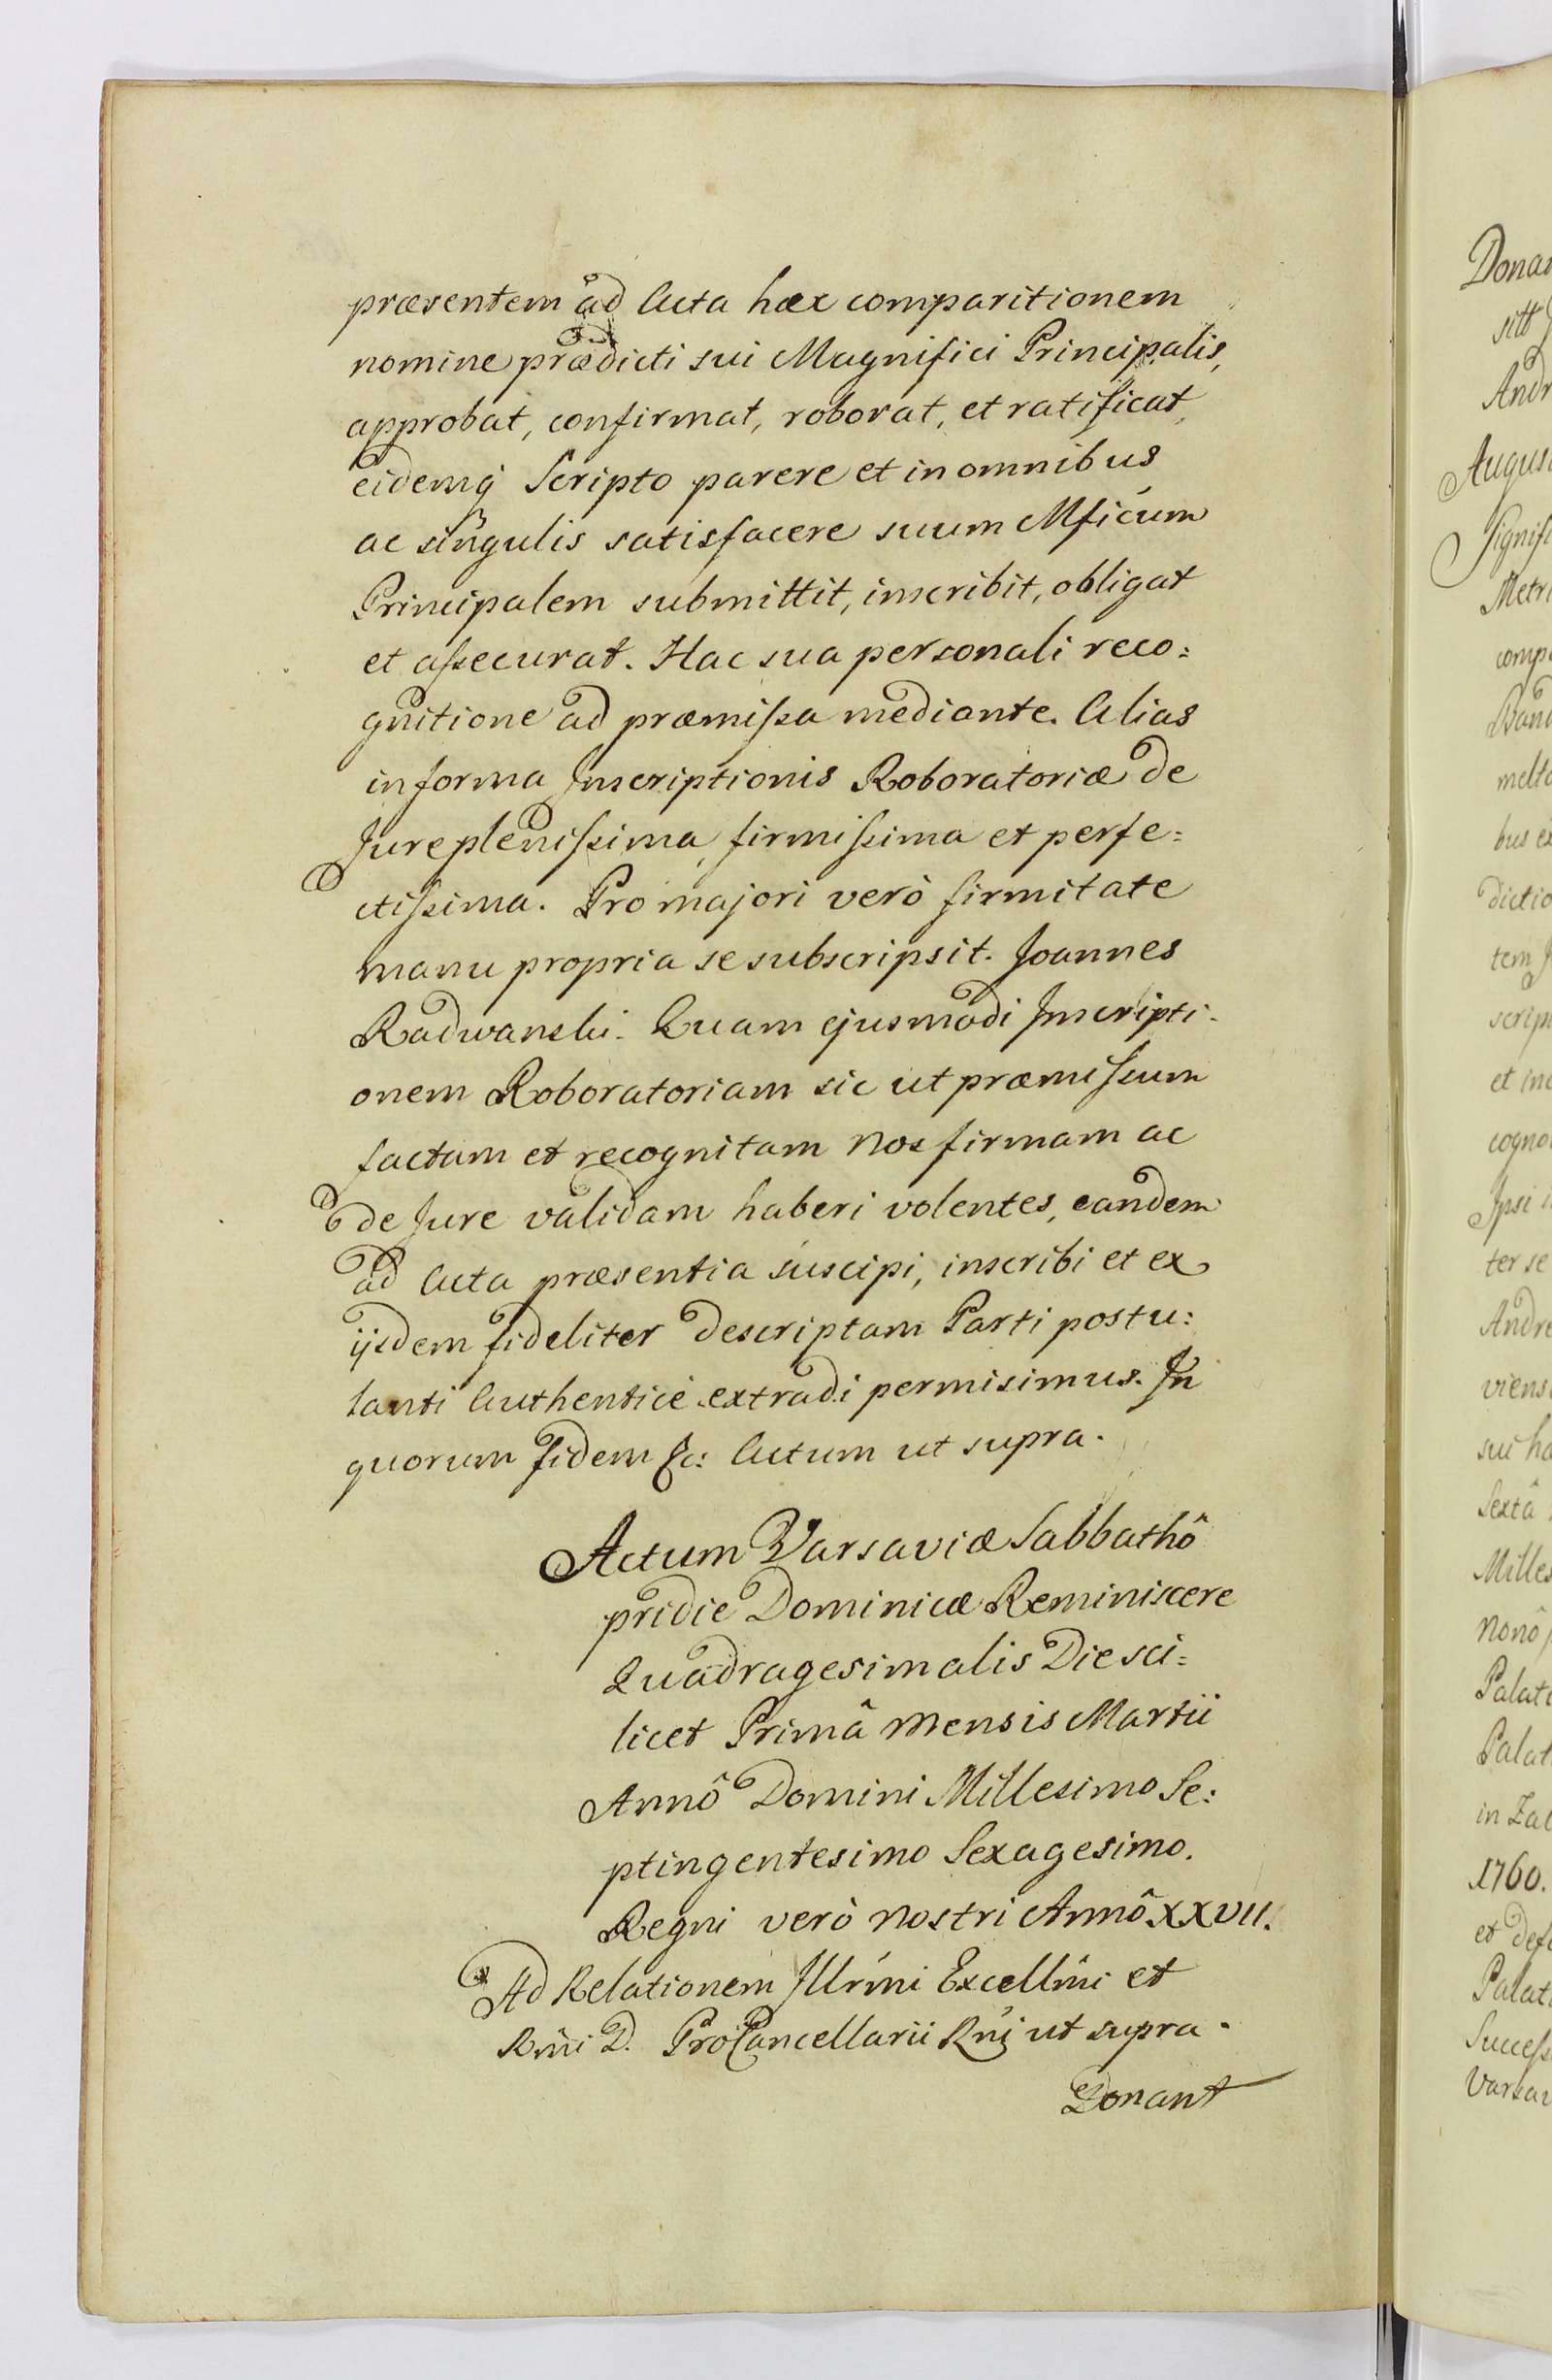 præsentem ad Acta hæc comparitionem
nomine prædicti sui Magnifici Principalis,
approbat, confirmat, roborat, et ratificat,
eidemq́ Scripto parere et in omnibus
ac singulis satisfacere suum Mficum
Principalem submittit, inscribit, obligat
et aſsecurat. Hac sua personali reco=
gnitione ad præmiſsa mediante. Alias
in forma Inscriptionis Roboratoriæ de
Jure pleniſsima, firmiſsima et perfe=
ctiſsima. Pro majori verò firmitate
manu propria se subscripsit. Joannes
Radwanski. Quam ejusmodi Inscripti-
onem Roboratoriam sic ut præmiſsum
factam et recognitam Nos firmam ac
de Jure validam haberi volentes, eandem
ad Acta præsentia suscipi, inscribi et ex
ijsdem fideliter descriptam Parti postu=
lanti Authenticè extradi permisimus. In
quorum fidem &c: Actum ut supra.
Actum Varsaviæ Sabbathô
pridie Dominicæ Reminiscere
Quadragesimalis Die sci=
licet Primâ Mensis Martii
Annô Domini Millesimo Se=
ptingentesimo Sexagesimo.
Regni verò Nostri Annô XXVII.
Ad Relationem Illr̃mi Excellm̃i et
Rm̃i D. ProCancellarii Rñi ut supra.
Donant
Donan
sitt
Andr
Augus
Signifi
Metri
comp
Band
melto
bus ex
dictio
tem J
scrip
et in
cogno
Ipsi
ter se
Andre
viens
sui ha
Sextâ
Milles
Nonô
Palati
Palat
in Zal
1760.
et def
Palat
Succeſs
Varsav